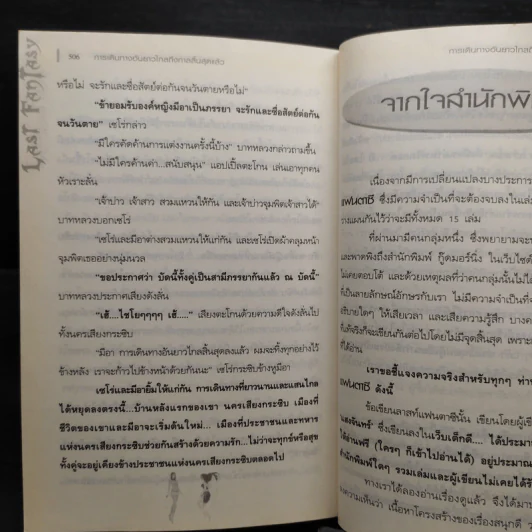 Last Fantasy
106 การเดินทางอันยาวไกลถึงกาลสิ้นสุดแล้ว
หรือไม่ จะรักและซื่อสัตย์ต่อกันจนวันตายหรือไม่"
"ข้ายอมรับองค์หญิงมีอาเป็นภรรยา จะรักและซื่อสัตย์ต่อกัน
จนวันตาย" เซโร่กล่าว
"มีใครคัดค้านการแต่งงานครั้งนี้บ้าง" บาทหลวงกล่าวถามขึ้น
"ไม่มีใครค้านค่า...สนับสนุน" แอปเปิ้ลตะโกน เล่นเอาทุกคน
หัวเราะลั่น
"เจ้าบ่าว เจ้าสาว สวมแหวนให้กัน และเจ้าบ่าวจุมพิตเจ้าสาวได้"
บาทหลวงบอกเซโร่
"เซโร่และมีอาต่างสวมแหวนให้แก่กัน และเซโร่เปิดผ้าคลุมหน้า
จุมพิตเธออย่างนุ่มนวล
"ขอประกาศว่า บัดนี้ทั้งคู่เป็นสามีภรรยากันแล้ว ณ บัดนี้"
บาทหลวงประกาศเสียงดังลั่น
"เฮ้....ไชโยๆๆๆๆ เฮ้...." เสียงตะโกนด้วยความดีใจดังลั่นไป
ทั้งนครเสียงกระซิบ
"มีอา การเดินทางอันยาวไกลสิ้นสุดลงแล้ว ผมจะทิ้งทุกอย่างไว้
ข้างหลัง เราจะก้าวไปข้างหน้าด้วยกันนะ" เซโร่กระซิบข้างหูมีอา
เซโร่และมีอายิ้มให้แก่กัน การเดินทางที่ยาวนานและแสนไกล
ได้หยุดลงตรงนี้...บ้านหลังแรกของเขา นครเสียงกระซิบ เมืองที่
ชีวิตของเขาและมีอาจะเริ่มต้นใหม่... เมืองที่ประชาชนและทหาร
แห่งนครเสียงกระซิบช่วยกันสร้างด้วยความรัก...ไม่ว่าจะทุกข์หรือสุข
ทั้งคู่จะอยู่เคียงข้างประชาชนแห่งนครเสียงกระซิบตลอดไป
การเดินทางอันยาวไกลถึง
จากใจสำนักพิ
เนื่องจากมีการเปลี่ยนแปลงบางประการ
แฟนตาซี ซึ่งมีความจำเป็นที่จะต้องจบลงในเล่ม
วางแผนกันไว้ว่าจะมีทั้งหมด 15 เล่ม
ที่ผ่านมามีคนกลุ่มหนึ่ง ซึ่งพยายามจะ
และพาดพิงถึงสำนักพิมพ์ กู๊ดมอร์นิ่ง ในเว็บไซต์
ไม่เคยตอบโต้ และด้วยเหตุผลที่ว่าคนกลุ่มนั้นไม่ได้
ที่เป็นลายลักษณ์อักษรกับเรา ไม่มีความจำเป็นที่
อธิบายใดๆ ให้เสียเวลา และเสียความรู้สึก บางค
ที่แท้จริงก็จะเขียนกันต่อไปโดยไม่มีจุดสิ้นสุด เพราะ
ที่ได้อ่าน
เราขอชี้แจงความจริงสำหรับทุกๆ ท่าน
แฟนตาซี ดังนี้
ข้อเขียนลาสท์แฟนตาซีนั้น เขียนโดยผู้เขีย
"แสงจันทร์" ซึ่งเขียนลงในเว็บเด็กดี.... ได้ประมา
ได้อ่านฟรี (ใครๆ ก็เข้าไปอ่านได้) อยู่ประมาณ
สำนักพิมพ์ใดๆ รวมเล่มและผู้เขียนไม่เคยได้รั
ทางเราได้ลองอ่านเรื่องดูแล้ว จึงได้มา
ความเห็นว่า เนื้อหาโครงสร้างของเรื่องสนุกดี